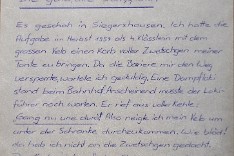 Es geschah in Siegershausen. Ich hatte die
Aufgabe im Herbst 1957 als 4. Klässlerin mit dem
grossen Velo einen Korb voller Zwetschgen meiner
Tante zu bringen. Da die Bariere mir den Weg
versperrte, wartete ich geduldig. Eine Dampflok
stand beim Bahnhof. Anscheinend meste der Loki-
führer noch warten. Er rief aus voller Kehle:
spring nur une dure! Also neigte ich mein Velo um
unter der Schranke durchzukommen. Wie blöd!
da hab ich nicht an die Zwetschgen gedacht.